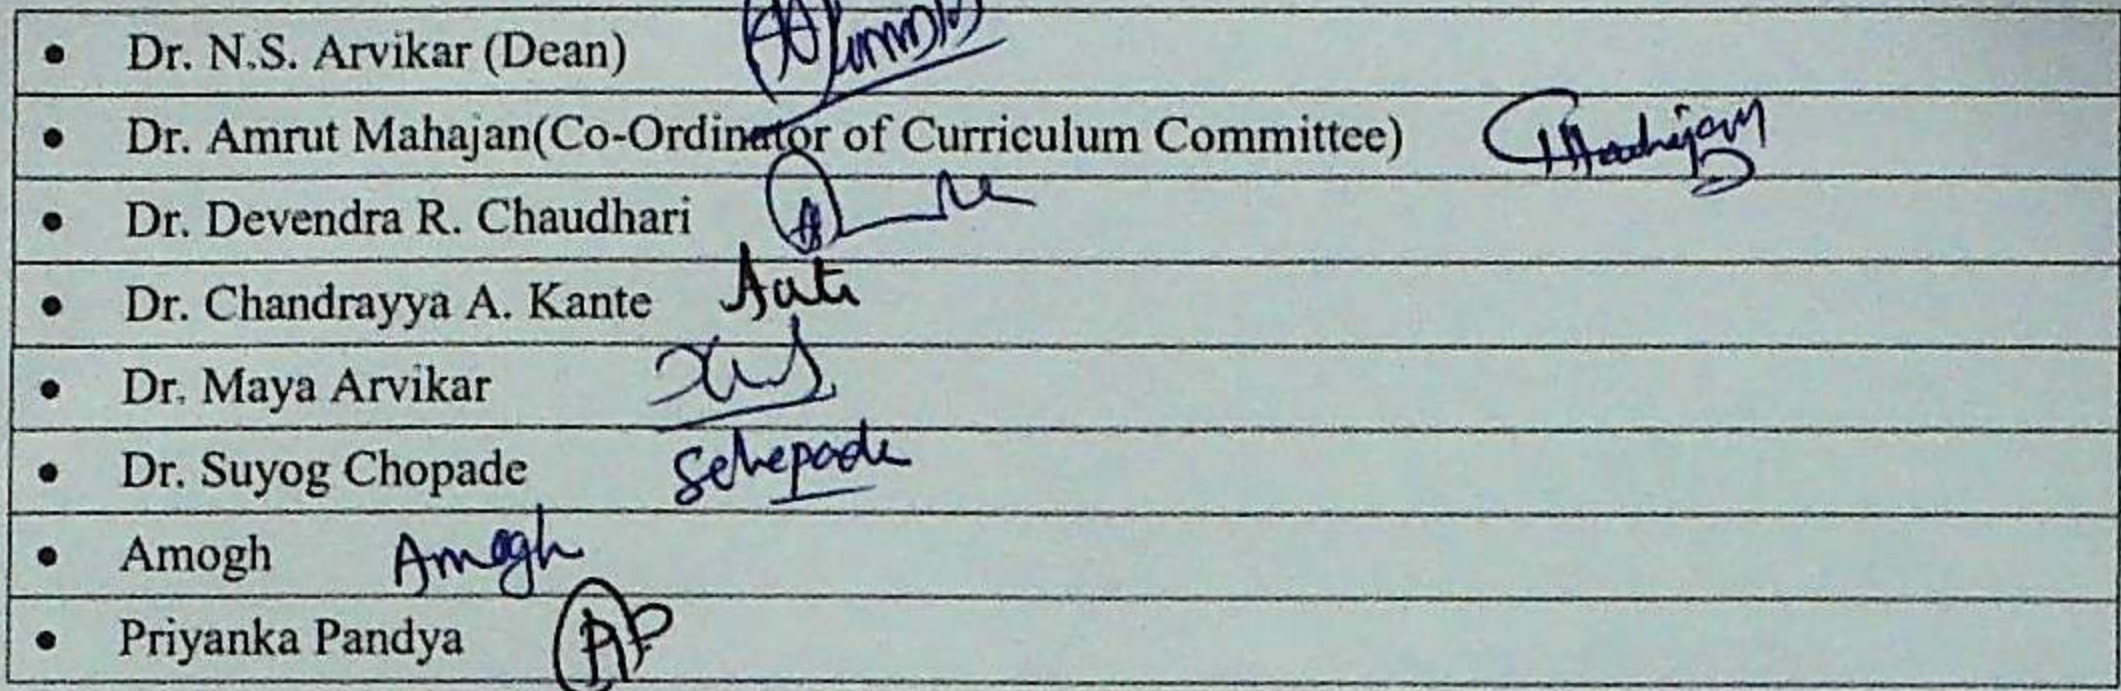 • Dr. N.S. Arvikar (Dean)
• Dr. Amrut Mahajan(Co-Ordinator of Curriculum Committee)
• Dr. Devendra R. Chaudhari
• Dr. Chandrayya A. Kante
• Dr. Maya Arvikar
• Dr. Suyog Chopade
• Amogh Amogh
• Priyanka Pandya